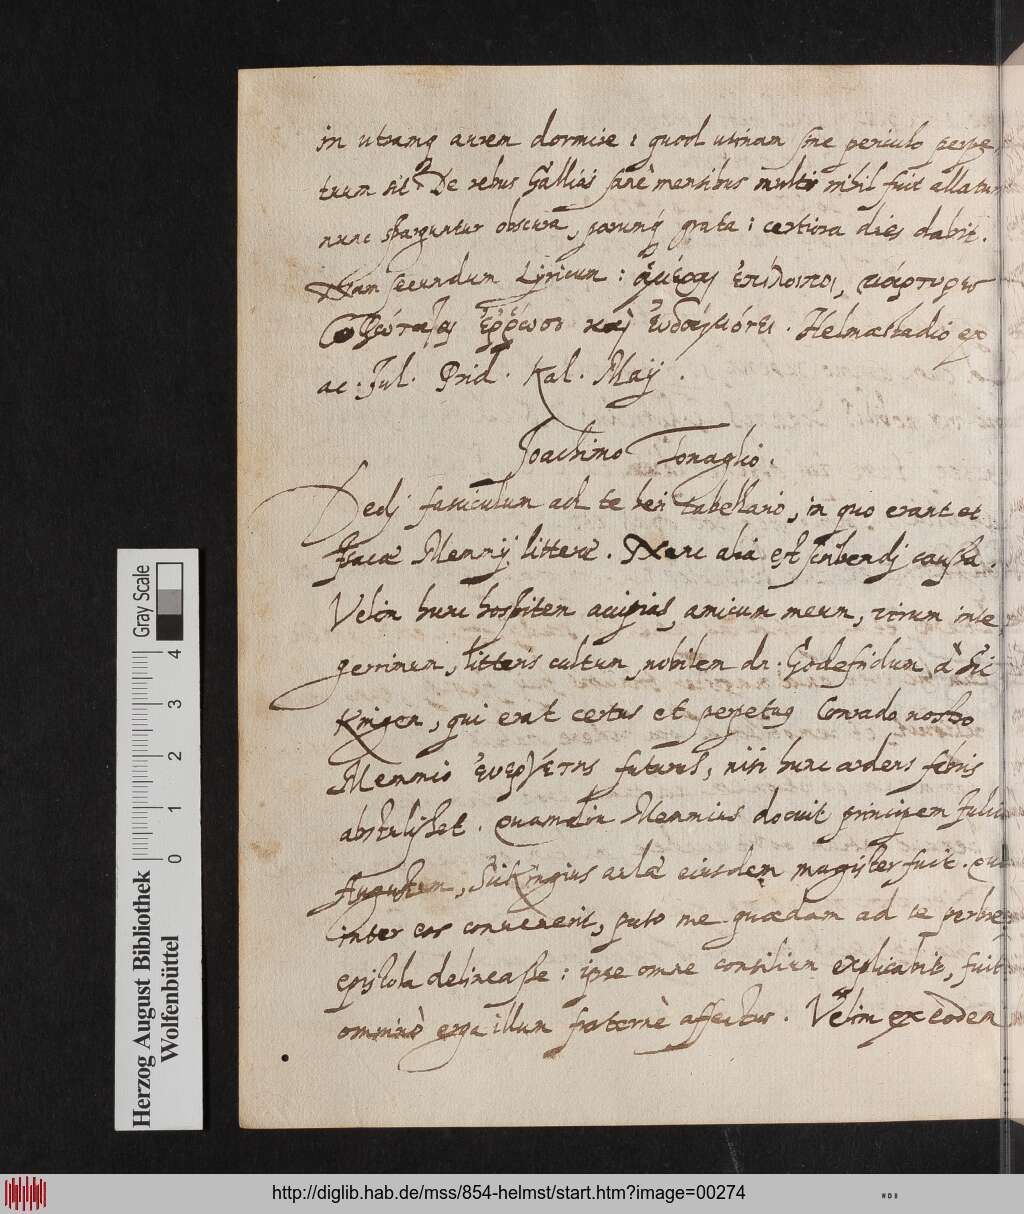 in utramq aurem dormire : quod utinam sine periculo perpe
tuum sit De rebus Gallias sanè mensibus multis nihil fuit allatu
nunc sparguntur obscura, parumq grata : certiora dies dabit.
Nam secundum Lyricum : ἁμέραι ἐπίλοιποι, μάρτυρες
σοφώταται ἔρρωσο καὶ ἐυδαιμόνει. Helmæstadio ex
ac : Jul. Prid. Kal. Maij.
Joachimo
Dedj fasciculum ad te heri tabellario, in quo erant et
Isacæ Memmij litteræ. Nunc alia est scribendj caussa.
Velim hunc hospitem accipias, amicum meum, virum inte
gerrimum, litteris cultum, nobilem dn. Godefridum à Sic
Kingen, qui erat certus et perpetuq Conrado nostro
Memmio ἐυεργέτης futurus, nisi hunc ardens febris
abstulisset. Quamdiu Memmius docuit principem Juliu
Augustum, Sickingius aulæ eiusdem magister fuit. Qu
inter eos convenerit, puto me quædam ad te perbre
epistola delineasse : ipse omne consilium explicabit, fuit
omninò erga illum fraternè affectus. Velim ex eodem
Herzog August Bibliothek
Wolfenbüttel
Gray Scale
0 1 2 3 4
http://diglib.hab.de/mss/854-helmst/start.htm?image=00274